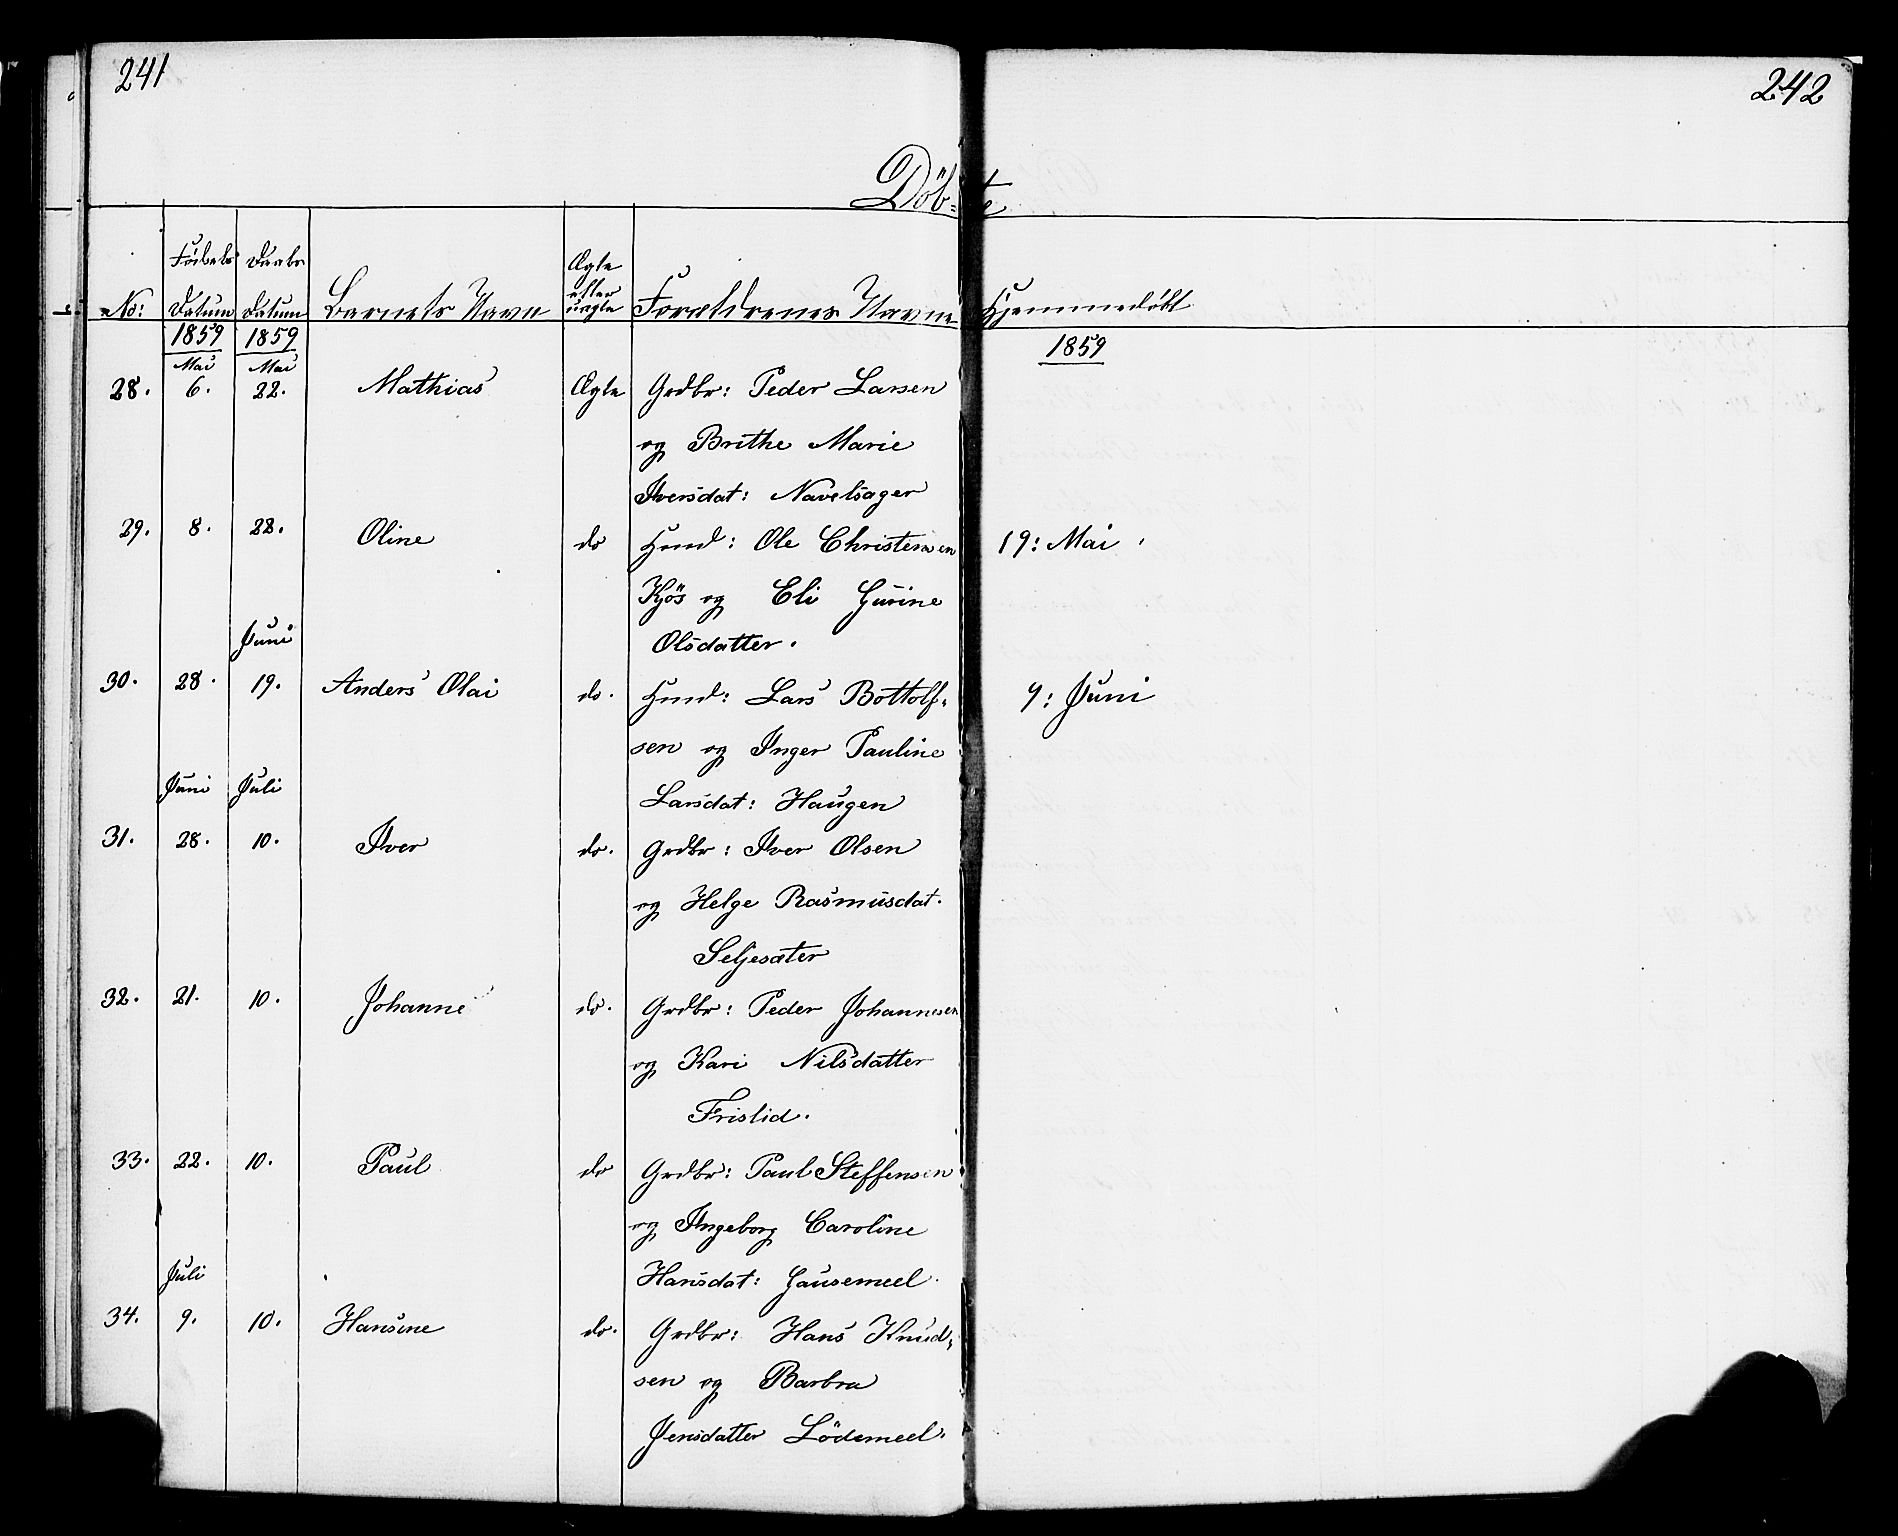 241
242
Döbte
No: Födsels Datum Daabs Datum Barnets Navn Ægte eller uægte Forældrenes Navne Hjemmedöbt
1859 1859 1859
Mai Mai
28. 6. 22. Mathias Ægte Grdbr: Peder Larsen
og Brithe Marie
Iversdat: Navelsager
29. 8. 22. Oline do Hmd: Ole Christensen 19: Mai
Kjös og Eli Gurine
Juni Olsdatter.
30. 28. 19. Anders Olai do. Hmd: Lars Bottolf-
9: Juni
sen og Inger Pauline
Juni Juli Larsdat: Haugen
31. 28. 10. Iver do. Grdbr: Iver Olsen
og Helge Rasmusdat.
Seljesæter
32. 21. 10. Johanne do. Grdbr: Peder Johannesen
og Kari Nilsdatter
Frislid.
33. 22. 10. Paul do Grdbr: Paul Steffensen
og Ingeborg Caroline
Juli Hansdat: Gausemeel.
34. 9. 10. Hansine do. Grdbr: Hans Knud-
sen og Barbra
Jensdatter Lödemeel.